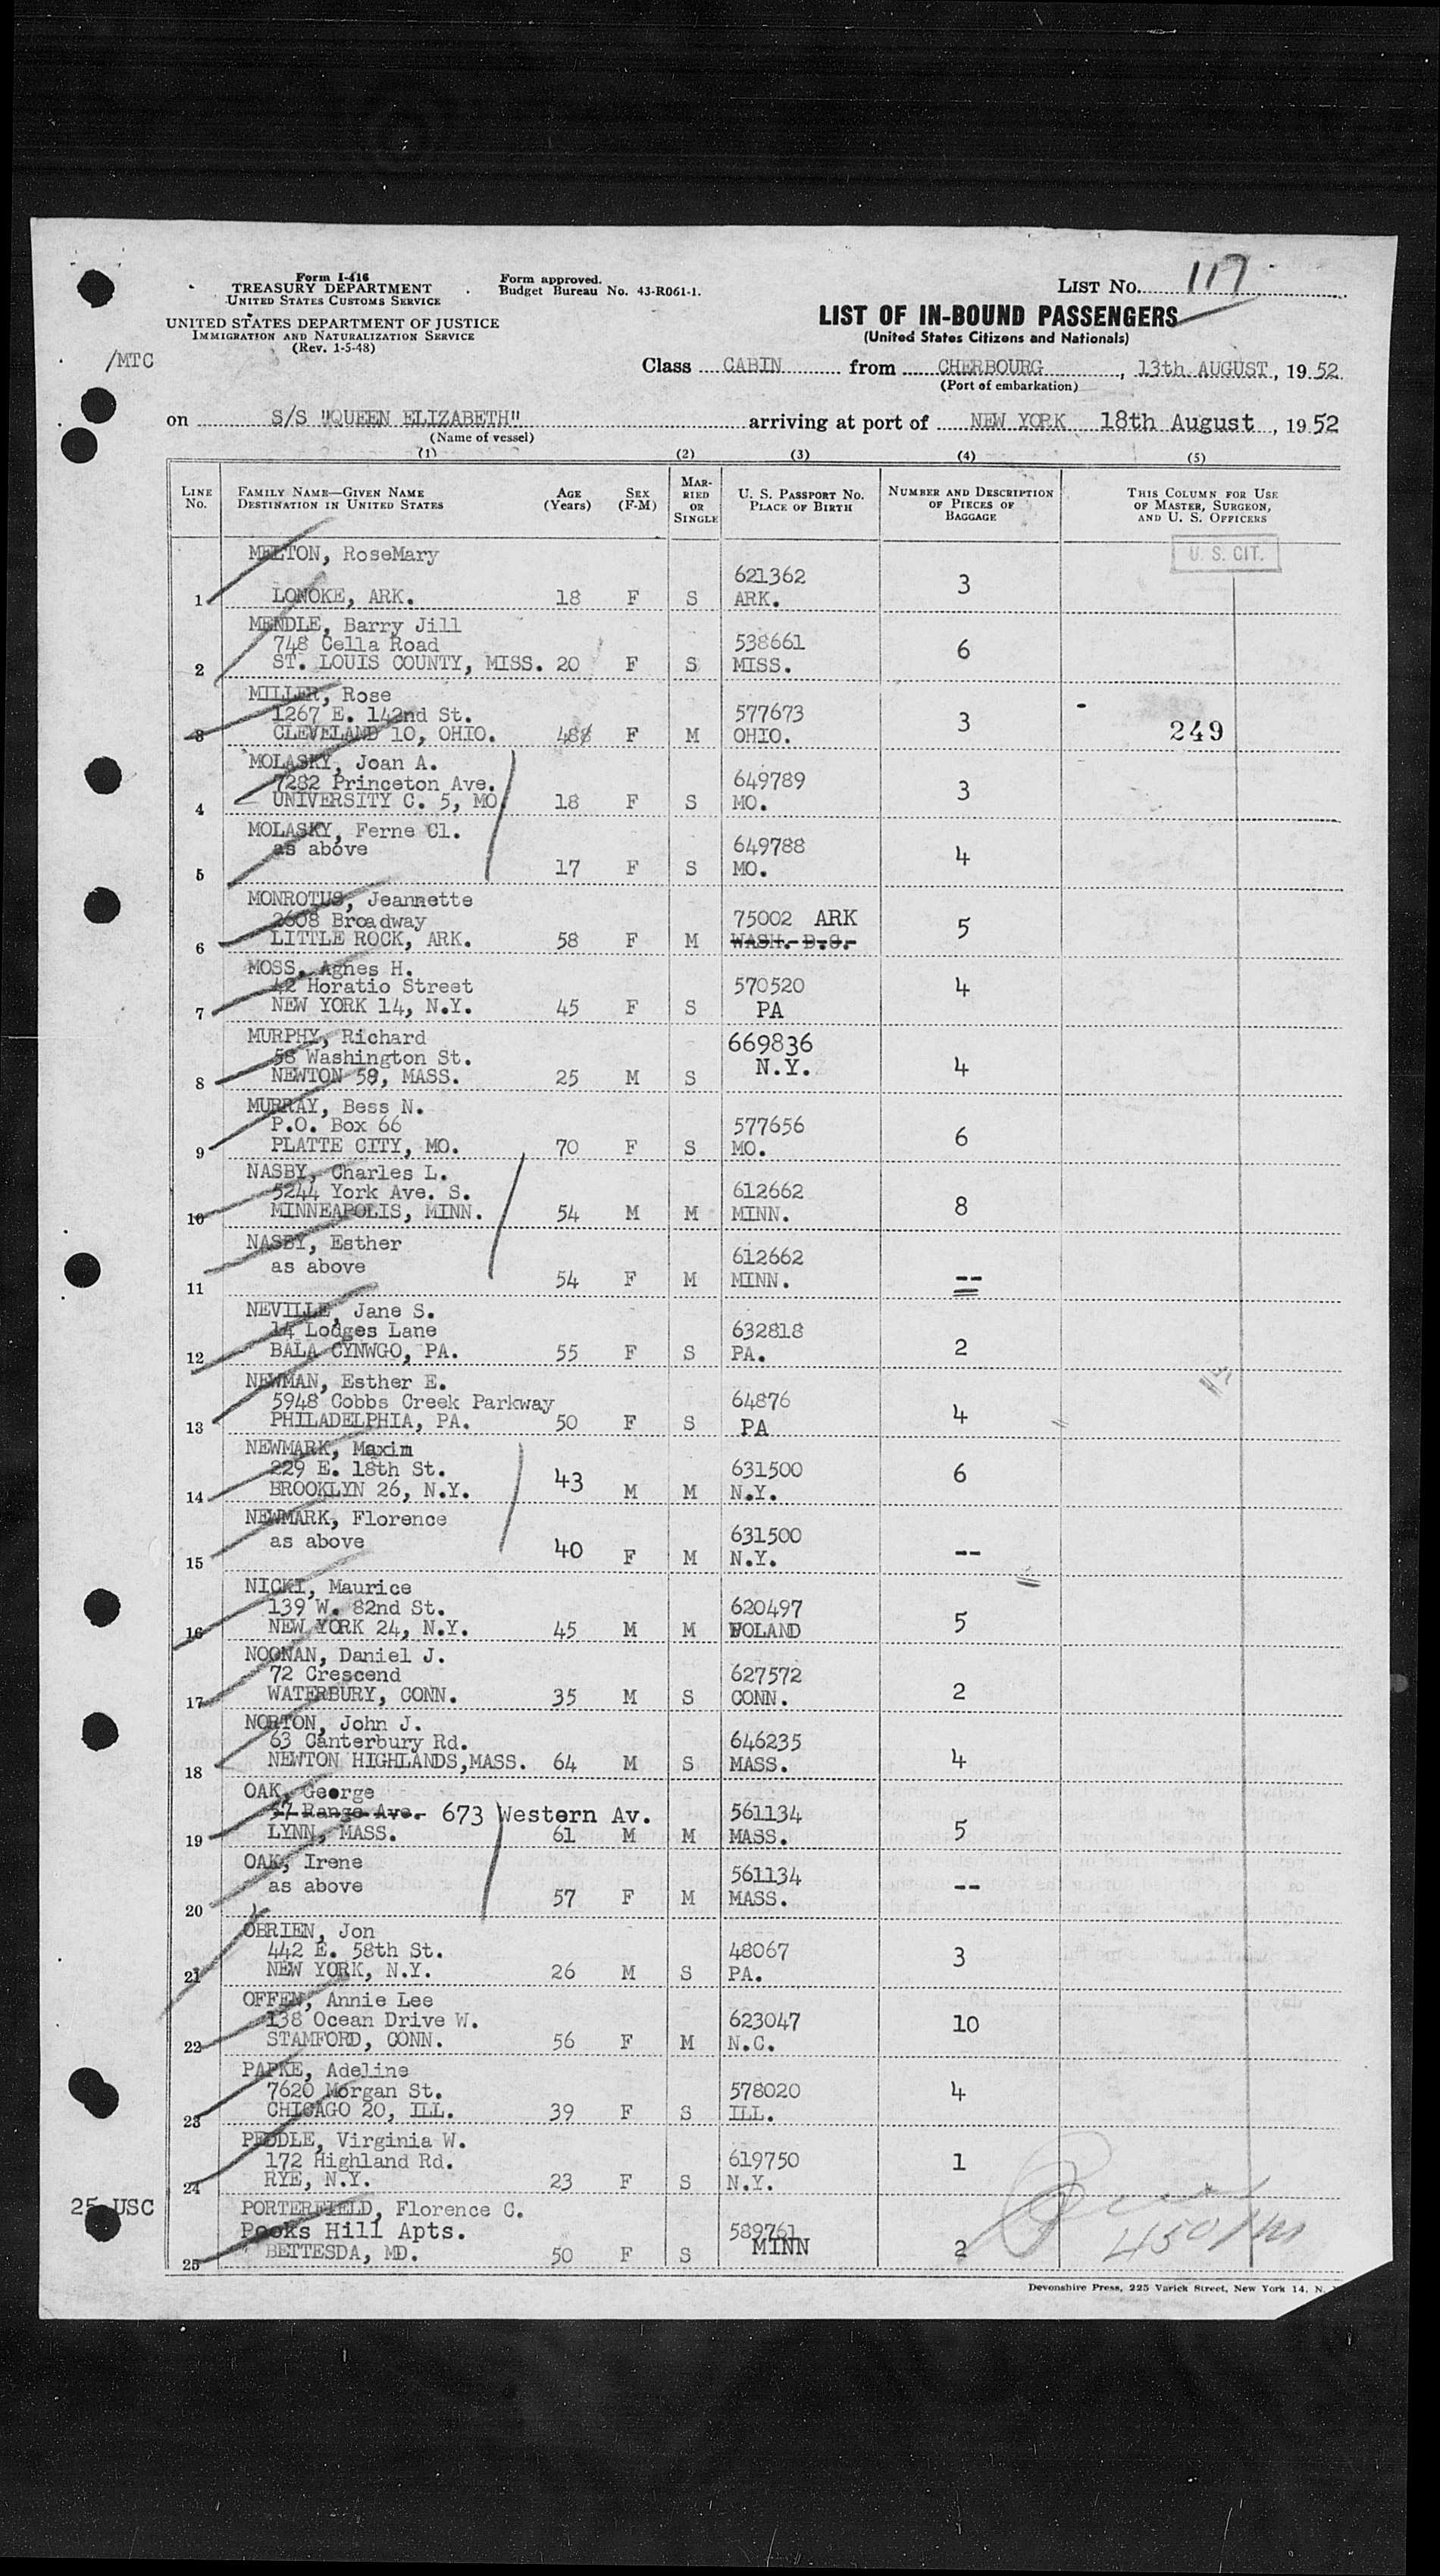 Form I-416
TREASURY DEPARTMENT
UNITED STATES CUSTOMS SERVICE
UNITED STATES DEPARTMENT OF JUSTICE
IMMIGRATION AND NATURALIZATION SERVICE
(Rev. 1-5-48)
Form approved.
Budget Bureau No. 43-R061-1.
LIST NO. 117
LIST OF IN-BOUND PASSENGERS
(United States Citizens and Nationals)
/MTC
Class CABIN from CHERBOURG, 13th AUGUST, 1952
(Port of embarkation)
on S/S "QUEEN ELIZABETH" arriving at port of NEW YORK 18th August, 1952
(Name of vessel)
(1) (2) (3) (4) (5)
LINE NO. FAMILY NAME—GIVEN NAME DESTINATION IN UNITED STATES AGE (Years) SEX (F-M) MARRIED OR SINGLE U. S. PASSPORT NO. PLACE OF BIRTH NUMBER AND DESCRIPTION OF PIECES OF BAGGAGE THIS COLUMN FOR USE OF MASTER, SURGEON, AND U. S. OFFICERS
U. S. CIT.
MELTON, RoseMary
621362 3
1 LONOKE, ARK. 18 F S ARK.
MENDLE, Barry Jill
748 Cella Road 538661 6
2 ST. LOUIS COUNTY, MISS. 20 F S MISS.
MILLER, Rose
1267 E. 142nd St. 577673 3
3 CLEVELAND 10, OHIO. 48 F M OHIO. 249
MOLASKY, Joan A.
7282 Princeton Ave. 649789 3
4 UNIVERSITY C. 5, MO. 18 F S MO.
MOLASKY, Ferne Cl.
as above 649788 4
5 17 F S MO.
MONROTUS, Jeannette
2608 Broadway 75002 ARK 5
6 LITTLE ROCK, ARK. 58 F M WASH. D.C.
MOSS, Agnes H.
42 Horatio Street 570520 4
7 NEW YORK 14, N.Y. 45 F S PA
MURPHY, Richard 669836
58 Washington St. N.Y. 4
8 NEWTON 58, MASS. 25 M S
MURRAY, Bess N.
P.O. Box 66 577656 6
9 PLATTE CITY, MO. 70 F S MO.
NASBY, Charles L.
5244 York Ave. S. 612662 8
10 MINNEAPOLIS, MINN. 54 M M MINN.
NASBY, Esther
as above 612662
11 54 F M MINN. --
NEVILLE, Jane S.
14 Lodges Lane 632818 2
12 BALA CYNWGO, PA. 55 F S PA.
NEWMAN, Esther E.
5948 Cobbs Creek Parkway 64876 4
13 PHILADELPHIA, PA. 50 F S PA
NEWMARK, Maxim
229 E. 18th St. 43 631500 6
14 BROOKLYN 26, N.Y. M M N.Y.
NEWMARK, Florence
as above 40 631500 --
15 F M N.Y.
NICKI, Maurice
139 W. 82nd St. 620497 5
16 NEW YORK 24, N.Y. 45 M M POLAND
NOONAN, Daniel J.
72 Crescend 627572 2
17 WATERBURY, CONN. 35 M S CONN.
NORTON, John J.
63 Canterbury Rd. 646235 4
18 NEWTON HIGHLANDS, MASS. 64 M S MASS.
OAK, George
37 Range Ave. 673 Western Av. 561134 5
19 LYNN, MASS. 61 M M MASS.
OAK, Irene
as above 561134 --
20 57 F M MASS.
OBRIEN, Jon
442 E. 58th St. 48067 3
21 NEW YORK, N.Y. 26 M S PA.
OFFEN, Annie Lee
138 Ocean Drive W. 623047 10
22 STAMFORD, CONN. 56 F M N.C.
PAPKE, Adeline
7620 Morgan St. 578020 4
23 CHICAGO 20, ILL. 39 F S ILL.
PEDDLE, Virginia W.
172 Highland Rd. 619750 1
24 RYE, N.Y. 23 F S N.Y.
25 USC PORTERFIELD, Florence C.
Pooks Hill Apts. 589761
25 BETTESDA, MD. 50 F S MINN 2
Devonshire Press, 225 Varick Street, New York 14, N.